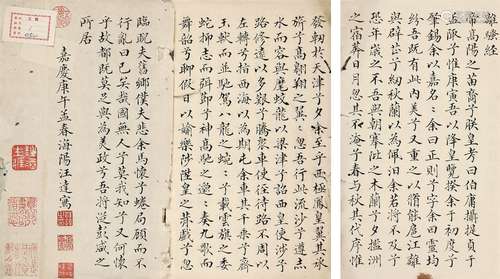 離騷經
帝高陽之苗裔兮朕皇考曰伯庸攝提貞于
孟陬兮惟庚寅吾以降皇覽揆余于初度兮
肇錫余以嘉名〻余曰正則兮字余曰靈均
紛吾既有此內美兮又重之以脩能扈江離
與辟芷兮紉秋蘭以為佩汩余若將不及兮
恐年歲之不吾與朝搴阰之木蘭兮夕攬洲
之宿莽日月忽其不淹兮春與秋其代序惟
發軔於天津兮夕余至乎西極鳳皇翼其承
旂兮高翱翔之翼〻忽吾行此流沙兮遵赤
水而容與麾蛟龍以梁津兮詔西皇使涉予
路修遠以多艱兮騰眾車使徑待路不周以
左轉兮指西海以為期屯余車其千乘兮齊
玉軑而並馳駕八龍之蜿〻兮載雲旗之委
蛇抑志而弭節兮神高馳之邈〻奏九歌而
舞韶兮聊假日以媮樂陟陞皇之赫戲兮忽
臨睨夫舊鄉僕夫悲余馬懷兮蜷局顧而不
行亂曰已矣哉國無人兮莫我知兮又何懷
乎故都既莫足與為美政兮吾將從彭咸之
所居
嘉慶庚午孟春海陽汪達寫